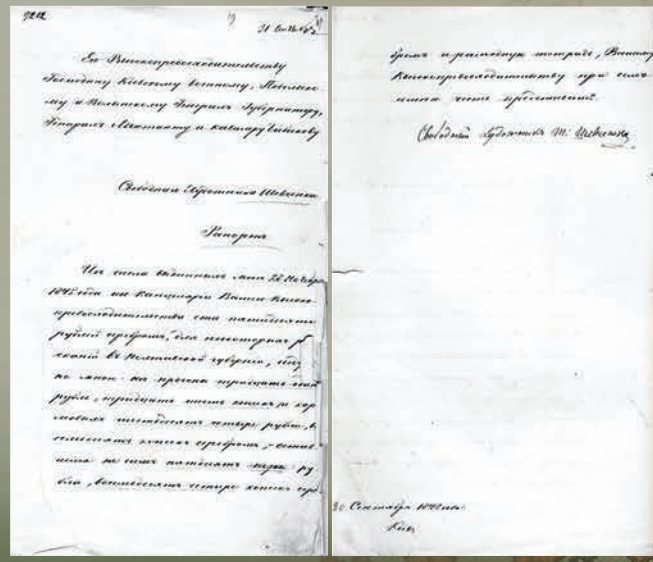 Его Высокопревосходительству
Господину Киевскому военному, Подольско-
му и Волынскому Генерал Губернатору,
Генерал Лейтенанту и кавалеру Бибикову
Свободного Художника Шевченка
Рапорт
Из числа выданных мне 28 Ноября
1845 года из Канцелярии Вашего Высоко-
превосходительства ста пятидесяти
рублей серебром, для некоторых
в Полтавской губернии,
мною на прогоны тридцать
рубля, тридцать шесть копеек и кор
мовых шестьдесят четыре рубля,
семьдесят копеек серебром,
пятдесят
бля, восемьдесят четыре копеек сер
бром и расходную тетрадь, Вашему
Высокопревосходительству при сем
имею честь представить.
Свободный Художник Т: Шевченко
Сентября
Киев